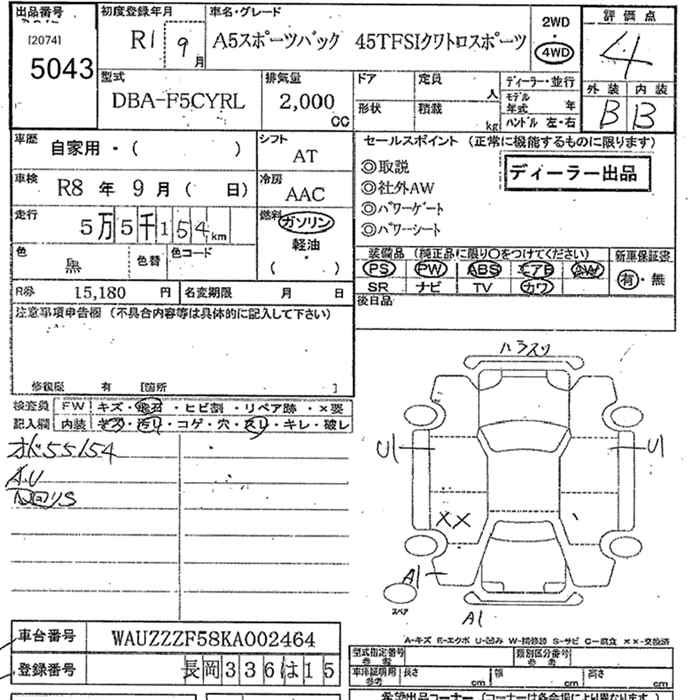 出品番号 初度登録年月 車名・グレード 2WD 評価点
[2074] R1 9月 A5スポーツバック 45TFSIクワトロスポーツ 4WD 4
5043
型式 排気量 ドア 定員 人 ディーラー・並行 外装 内装
DBA-F5CYRL 2,000 CC 形状 積載 kg モデル年式 年 B B
ハンドル 左・右
車歴 自家用・( ) シフト AT セールスポイント (正常に機能するものに限ります)
◎取説 ディーラー出品
車検 R8 年 9 月 ( 日) 冷房 AAC ◎社外AW
◎パワーゲート
走行 5万5千154km 燃料 ガソリン ◎パワーシート
軽油
( ・ )
色 黒 色替 色コード 装備品 (純正品に限り○をつけてください) 新車保証書
PS PW ABS エアB AW 有・無
R券 15,180 円 名変期限 月 日 SR ナビ TV カワ
注意事項申告欄 (不具合内容等は具体的に記入して下さい) 後日品
修復歴 有 [箇所 ]
ハラスリ
検査員 FW キズ・飛石・ヒビ割・リペア跡・×要
記入欄 内装 キズ・汚リ・コゲ・穴・スレ・キレ・破レ
55154
U1 U1
XX
A1
スペア
A1
A-キズ E-エクボ U-凹み W-補修跡 S-サビ C-腐食 ××-交換済
車台番号 WAUZZZF58KA002464
型式指定番号 参考 類別区分番号 参考
登録番号 長岡336は15
車検証明用 参考 長さ cm 幅 cm 高さ cm
希望出品コーナー (コーナーは各会場により異なります)